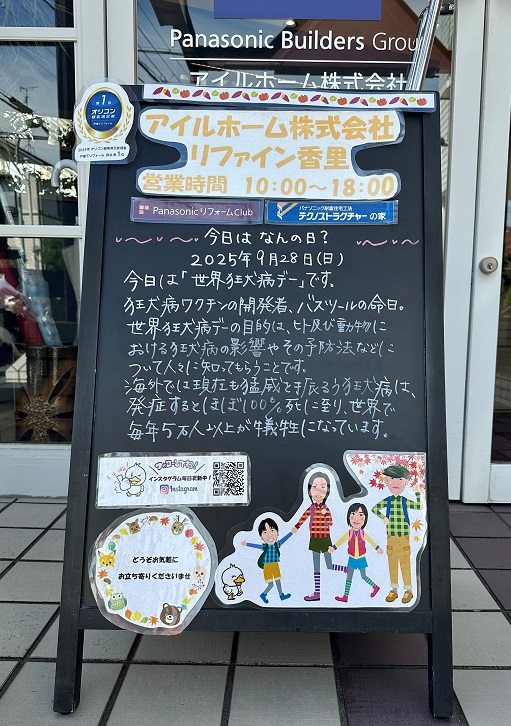 Panasonic Builders Grou
アイルホーム株式会社
第1位
オリコン
顧客満足度
アイルホーム株式会社
リファイン香里
営業時間 10:00〜18:00
PanasonicリフォームClub
パナソニック耐震住宅工法
テクノストラクチャーの家
今日は なんの日?
2025年9月28日(日)
今日は「世界狂犬病デー」です。
狂犬病ワクチンの開発者、パスツールの命日。
世界狂犬病デーの目的は、ヒト及び動物に
おける狂犬病の影響やその予防法などに
ついて人々に知ってもらうことです。
海外では現在も猛威を振るう狂犬病は、
発症するとほぼ100%死に至り、世界で
毎年5万人以上が犠牲になっています。
フォローしてね!
インスタグラム毎日更新中!
Instagram
どうぞお気軽に
お立ち寄りくださいませ